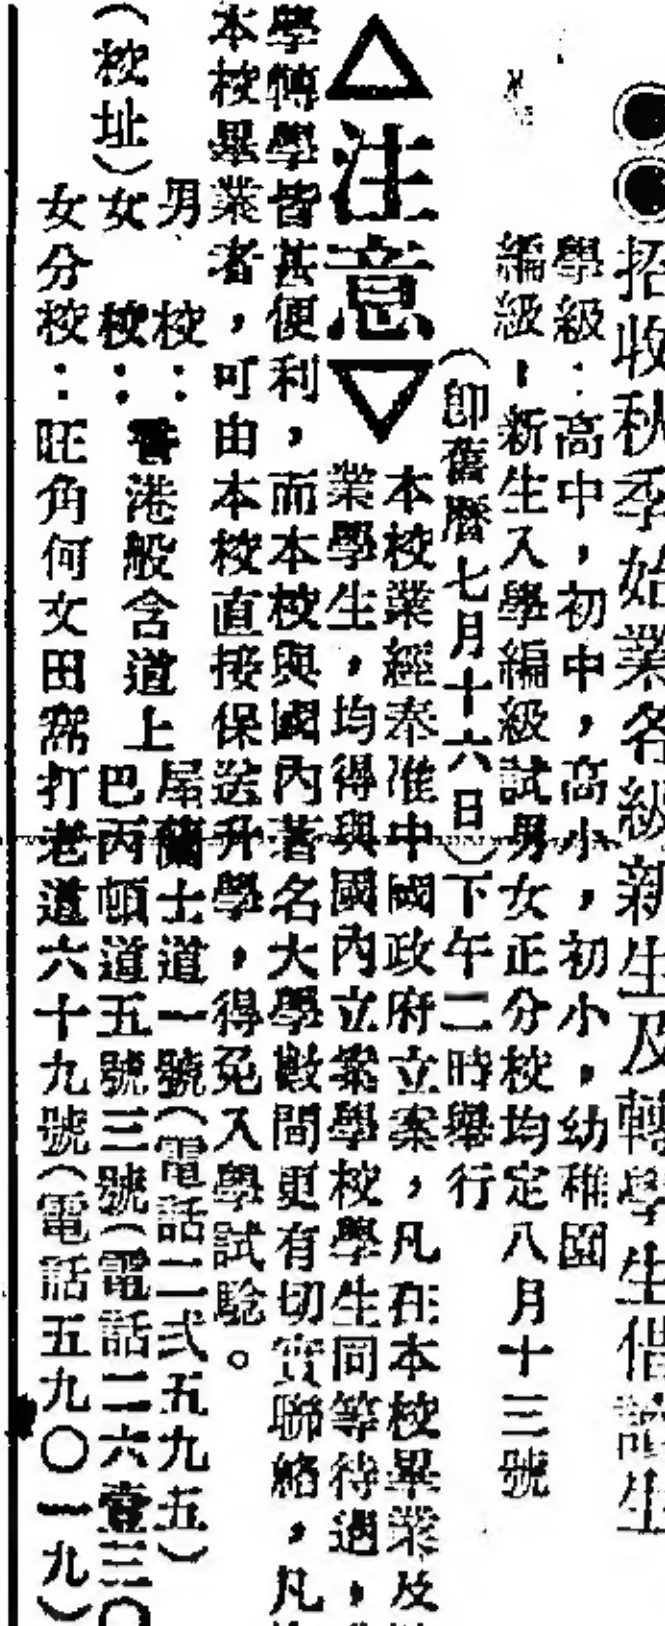 ◉◉招收秋季始業各級新生及轉學生借讀生
學級：高中，初中，高小，初小，幼稚園
編級：新生入學編級試男女正分校均定八月十三號
（即舊曆七月十六日）下午二時舉行
△注意▽
本校業經奉准中國政府立案，凡在本校畢業及
業學生，均得與國內立案學校學生同等待遇，
學轉學皆甚便利，而本校與國內著名大學數間更有切實聯絡，凡
本校畢業者，可由本校直接保送升學，得免入學試驗。
（校址）
男校：
女校：
香港般含道上
屈蘭士道一號（電話二式五九五）
巴丙頓道五號三號（電話二六壹三〇
女分校：旺角何文田窩打老道六十九號（電話五九〇一九）